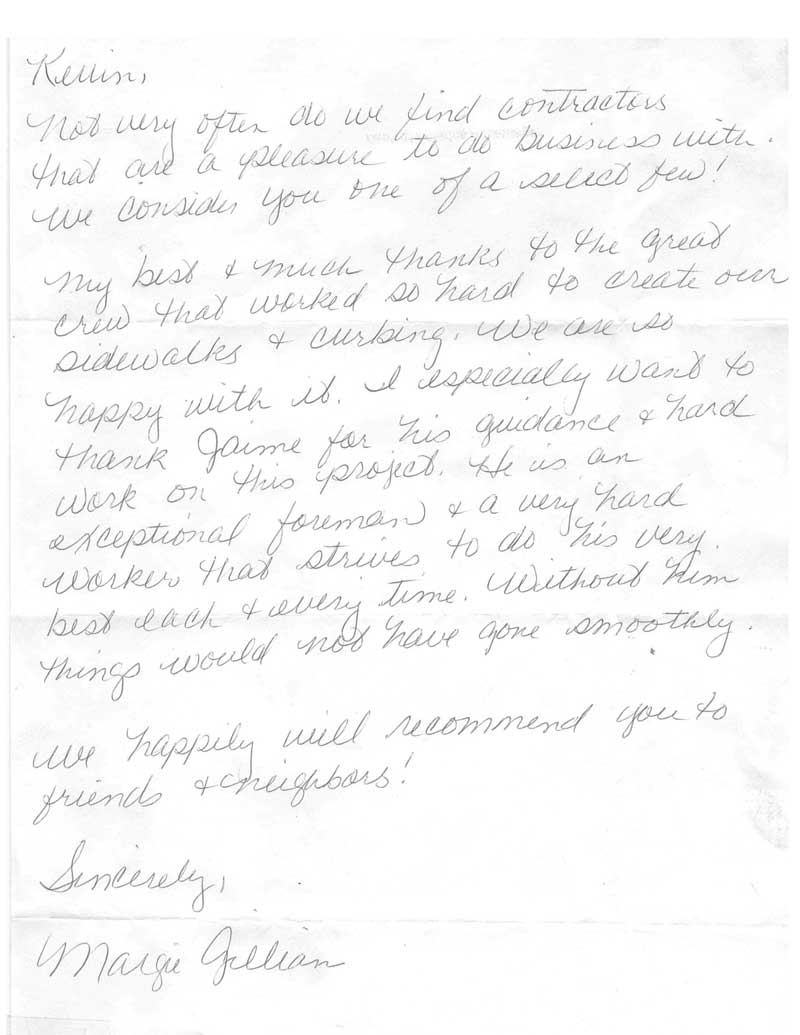 Kevin,
Not very often do we find contractors
that are a pleasure to do business with.
We consider you one of a select few!
My best & much thanks to the great
crew that worked so hard to create our
sidewalks & curbing. We are so
happy with it. I especially want to
thank Jaime for his guidance & hard
work on this project. He is an
exceptional foreman & a very hard
worker that strives to do his very
best each & every time. Without him
things would not have gone smoothly.
We happily will recommend you to
friends & neighbors!
Sincerely,
Margie Gillian